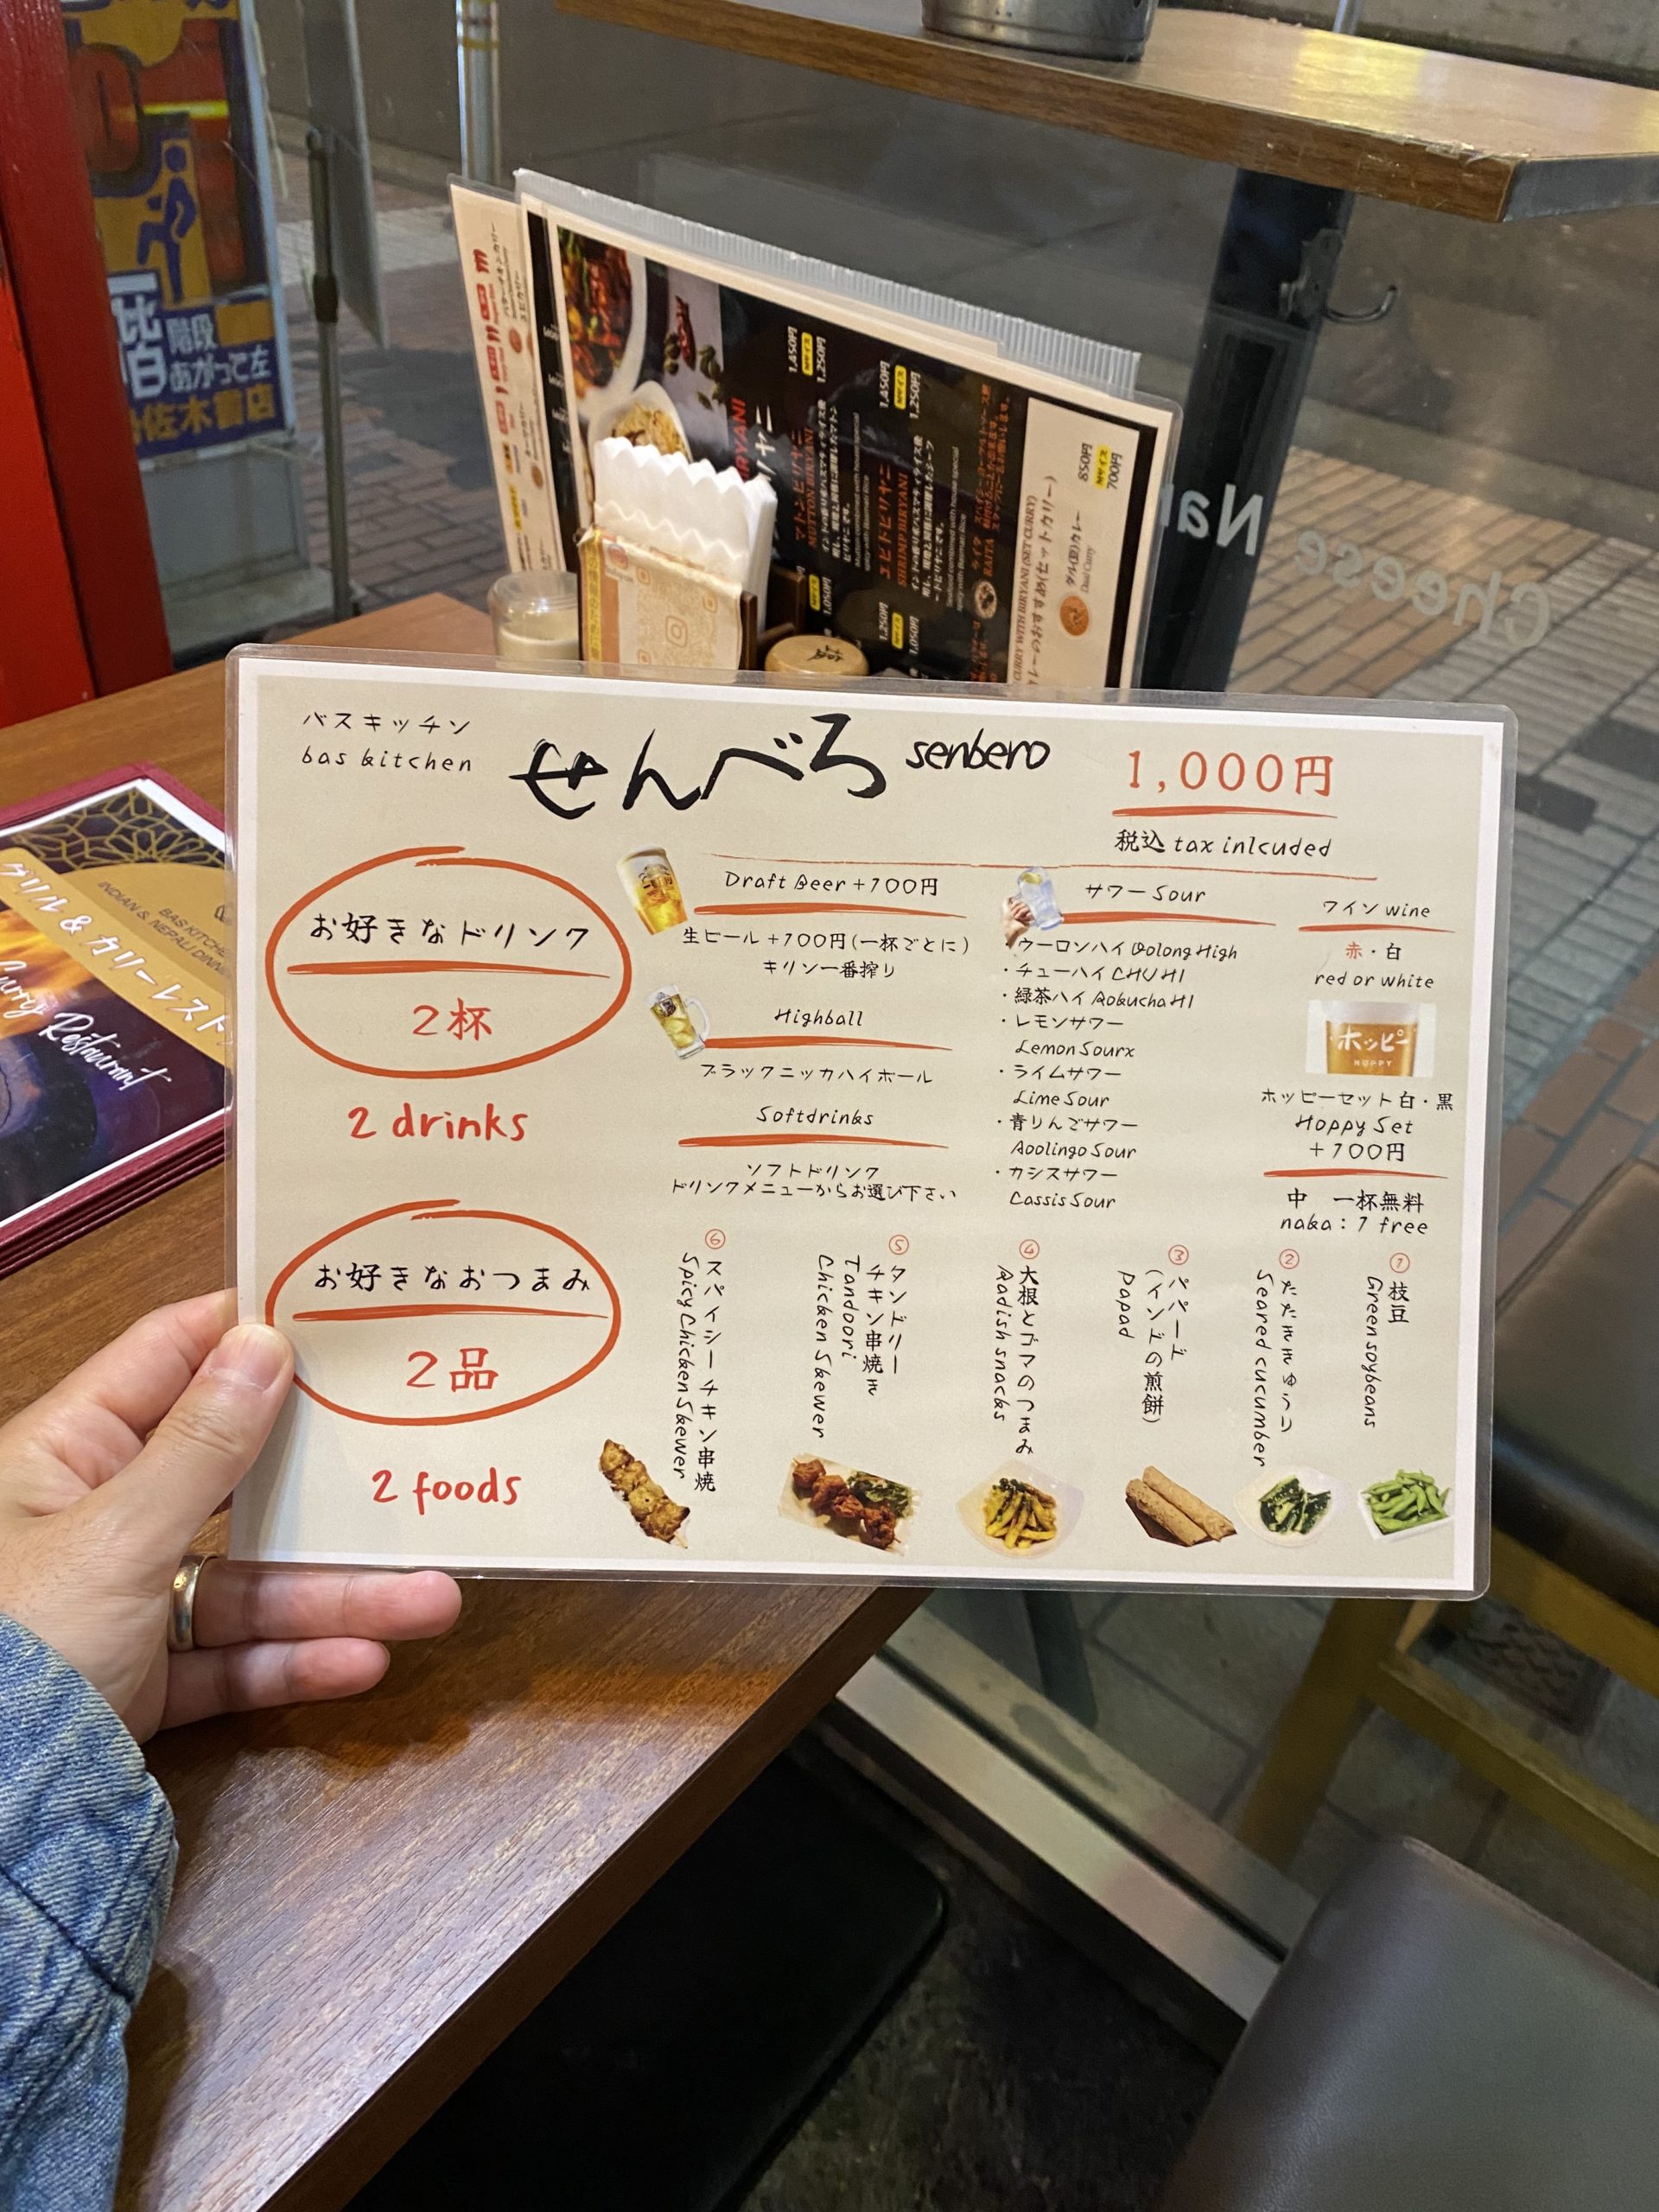 バスキッチン
bas kitchen
せんべろ senbero
1,000円
税込 tax inlcuded
お好きなドリンク
2杯
2 drinks
Draft Beer +100円
生ビール +100円(一杯ごとに)
キリン一番搾り
Highball
ブラックニッカハイホール
Softdrinks
ソフトドリンク
ドリンクメニューからお選び下さい
サワー Sour
・ウーロンハイ Oolong High
・チューハイ CHU HI
・緑茶ハイ Rokucha HI
・レモンサワー
Lemon Sourx
・ライムサワー
Lime Sour
・青りんごサワー
Aoolingo Sour
・カシスサワー
Cassis Sour
ワイン wine
赤・白
red or white
ホッピー
HOPPY
ホッピーセット 白・黒
Hoppy Set
+100円
中 一杯無料
naka: 1 free
お好きなおつまみ
2品
2 foods
① 枝豆
Green soybeans
② たたききゅうり
Seared cucumber
③ パパード
(インドの煎餅)
Papad
④ 大根とゴマのつまみ
Radish snacks
⑤ タンドリー
チキン串焼き
Tandoori
Chicken Skewer
⑥ スパイシーチキン串焼
Spicy Chicken Skewer
グリル & カリーレスト
BAS KITCHE
INDIAN & NEPALI DINN
Curry Restaurant
階段
あがって左
佐木書店
マトンビリヤニ
MUTTON BIRYANI
1,450円
1,250円
エビビリヤニ
SHRIMP BIRYANI
1,450円
1,250円
1,250円
1,050円
RAITA
CURRY WITH BIRYANI (SET CURRY)
ダル(豆)カレー
Daal Curry
850円
700円
Cheese Na